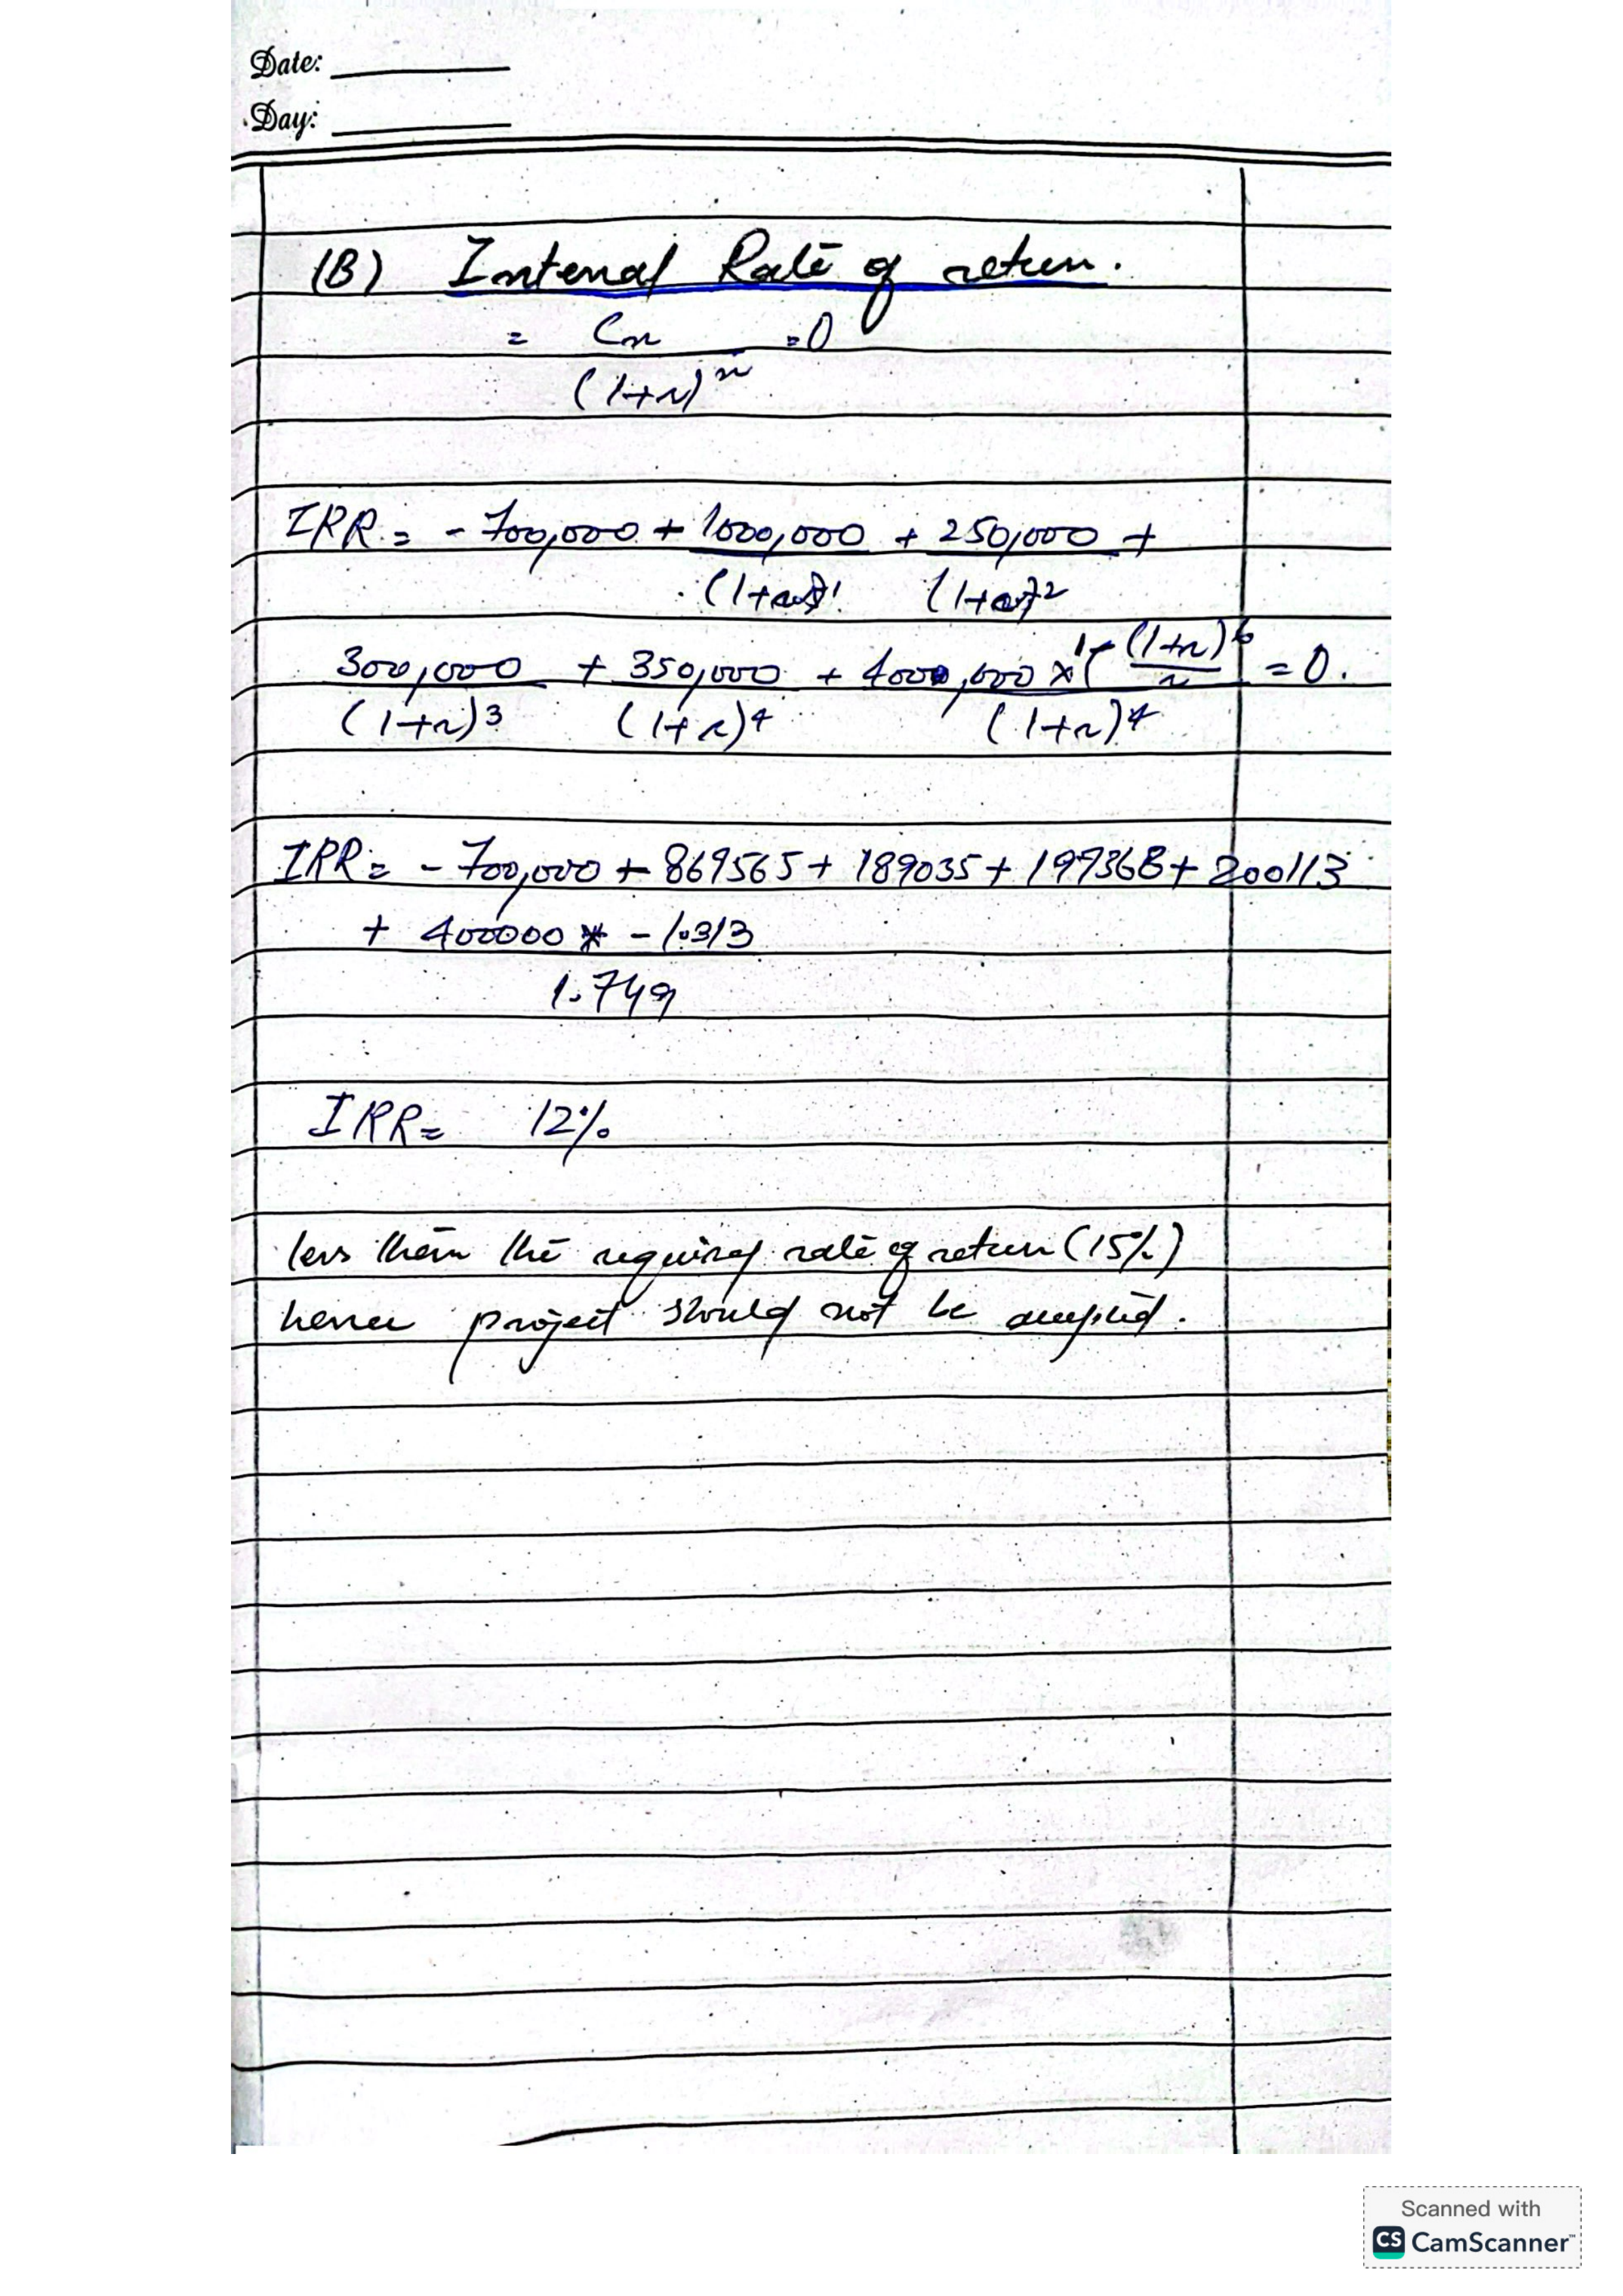 Date:
Day:
(B) Internal Rate of return.
= Cn =0
(1+r)^n
IRR = - 700,000 + 1000,000 + 250,000 +
(1+r)^1 (1+r)^2
300,000 + 350,000 + 4000,000 x 1-(1+r)^6 = 0.
r
(1+r)^3 (1+r)^4 (1+r)^4
IRR = - 700,000 + 869565 + 189035 + 197368 + 200113
+ 400000 * - 1.313
1.749
IRR = 12%
less than the required rate of return (15%)
hence project should not be accepted.
Scanned with
CS CamScanner™